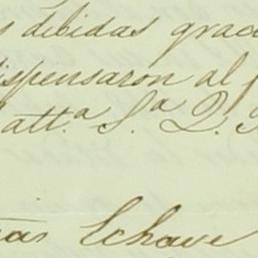 s debidas grac
ispensaron al f
att.ª S.ª Q.
as Echave